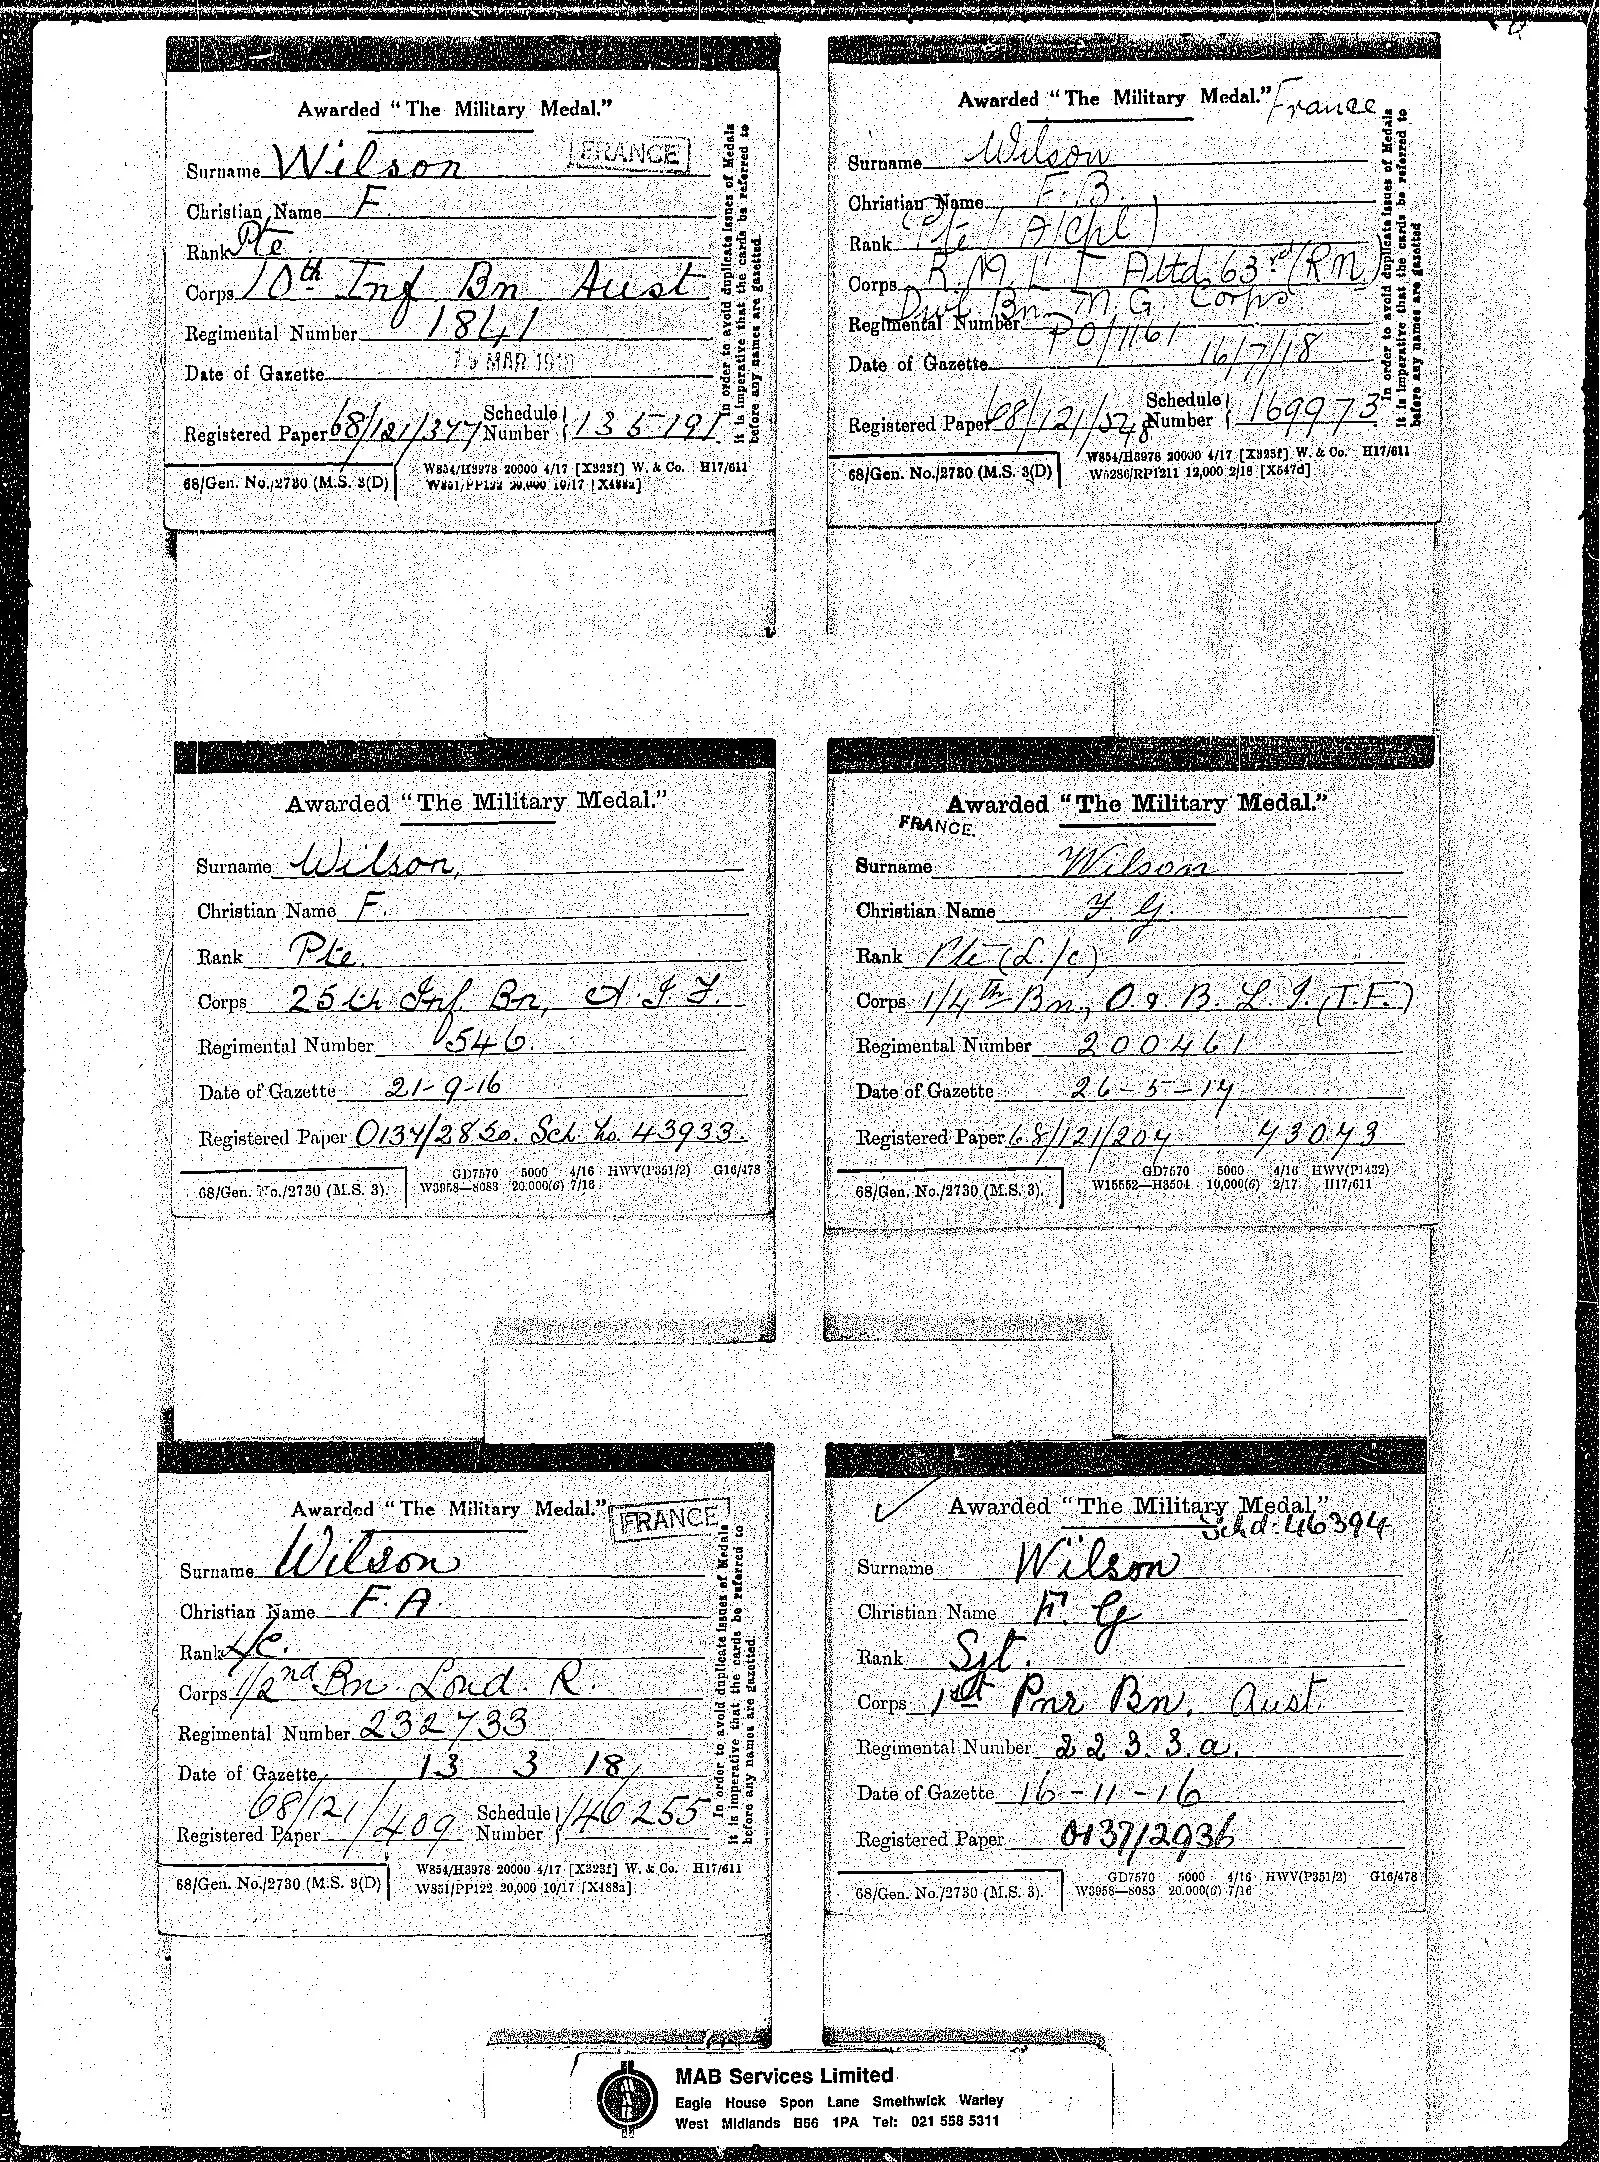 Awarded "The Military Medal."
FRANCE
Surname Wilson
Christian Name F.
Rank Pte
Corps 10th Inf Bn Aust
Regimental Number 1841
Date of Gazette MAR
Registered Paper 68/121/347 Schedule Number 135191
In order to avoid duplicate issues of Medals
it is imperative that the cards be referred to
before any names are gazetted.
68/Gen. No./2730 (M.S. 3(D)
W854/H3978 20000 4/17 [X323f] W. & Co. H17/611
W851/PP122 20,000 10/17 [X488a]
Awarded "The Military Medal." France
Surname Wilson
Christian Name F. B.
Rank Pte (A/Cpl)
Corps R. M. L I Attd 63rd (RN)
Divl Bn M. G. Corps
Regimental Number PO/1161
Date of Gazette 16/7/18
Registered Paper 68/121/ Schedule Number 169973
In order to avoid duplicate issues of Medals
it is imperative that the cards be referred to
before any names are gazetted
68/Gen. No./2730 (M.S. 3(D)
W854/H3978 20000 4/17 [X323f] W. & Co. H17/611
W5286/RP1211 12,000 2/18 [X547d]
Awarded "The Military Medal."
Surname Wilson,
Christian Name F.
Rank Pte.
Corps 25th Inf Bn, A. I. F.
Regimental Number 546.
Date of Gazette 21-9-16
Registered Paper 0137/2850. Sch No. 43933.
68/Gen. No./2730 (M.S. 3).
GD7570 5000 4/16 HWV(P351/2) G16/478
W3958—8083 20.000(6) 7/16
Awarded "The Military Medal."
FRANCE.
Surname Wilson
Christian Name F. G.
Rank Pte (L./c)
Corps 1/4th Bn., O & B. L. I. (T.F.)
Regimental Number 200461
Date of Gazette 26-5-17
Registered Paper 68/121/204 43043
68/Gen. No./2730 (M.S. 3).
GD7570 5000 4/16 HWV(P1432)
W15552—H3504 10,000(6) 2/17 H17/611
Awarded "The Military Medal."
FRANCE
Surname Wilson
Christian Name F. A.
Rank L/c.
Corps 1/2nd Bn. Lond. R.
Regimental Number 232733
Date of Gazette 13 3 18
Registered Paper 68/121/409 Schedule Number 146255
In order to avoid duplicate issues of Medals
it is imperative that the cards be referred to
before any names are gazetted.
68/Gen. No./2730 (M.S. 3(D)
W854/H3978 20000 4/17 [X323f] W. & Co. H17/611
W851/PP122 20,000 10/17 [X488a]
Awarded "The Military Medal."
Schd. 46394
Surname Wilson
Christian Name F. G
Rank Sjt.
Corps 1st Pnr Bn. Aust.
Regimental Number 2233.a.
Date of Gazette 16-11-16
Registered Paper 0137/2936
68/Gen. No./2730 (M.S. 3).
GD7570 5000 4/16 HWV(P351/2) G16/478
W3958—8083 20.000(6) 7/16
MAB Services Limited
Eagle House Spon Lane Smethwick Warley
West Midlands B66 1PA Tel: 021 558 5311